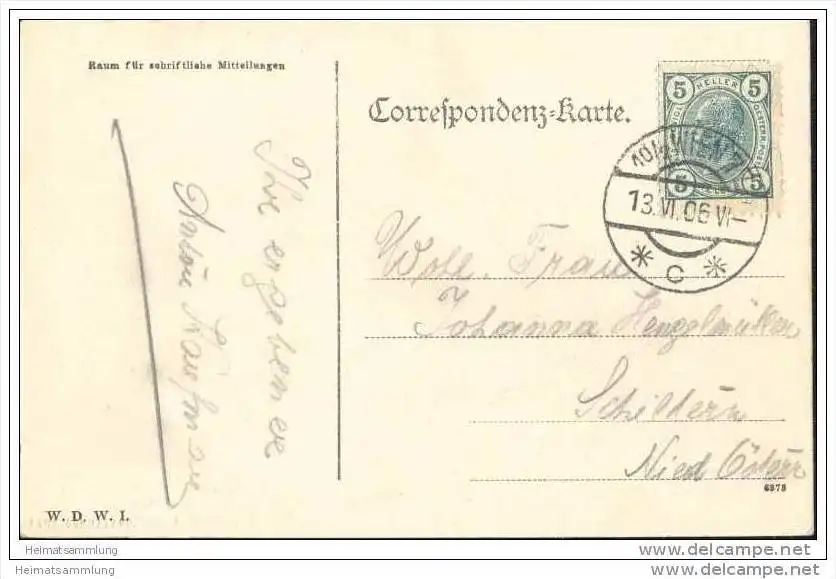 Raum für schriftliche Mitteilungen
Correspondenz-Karte.
5 HELLER 5
5 5
10/1 WIEN
13.VI.06 VI–
* C *
Wohl. Frau
Johanna Hengelmüller
Schiltern
Nied Österr
6373
Ihre ergebenste
Anton
W. D. W. I.
Heimatsammlung
Heimatsammlung
www.delcampe.net
www.delcampe.net